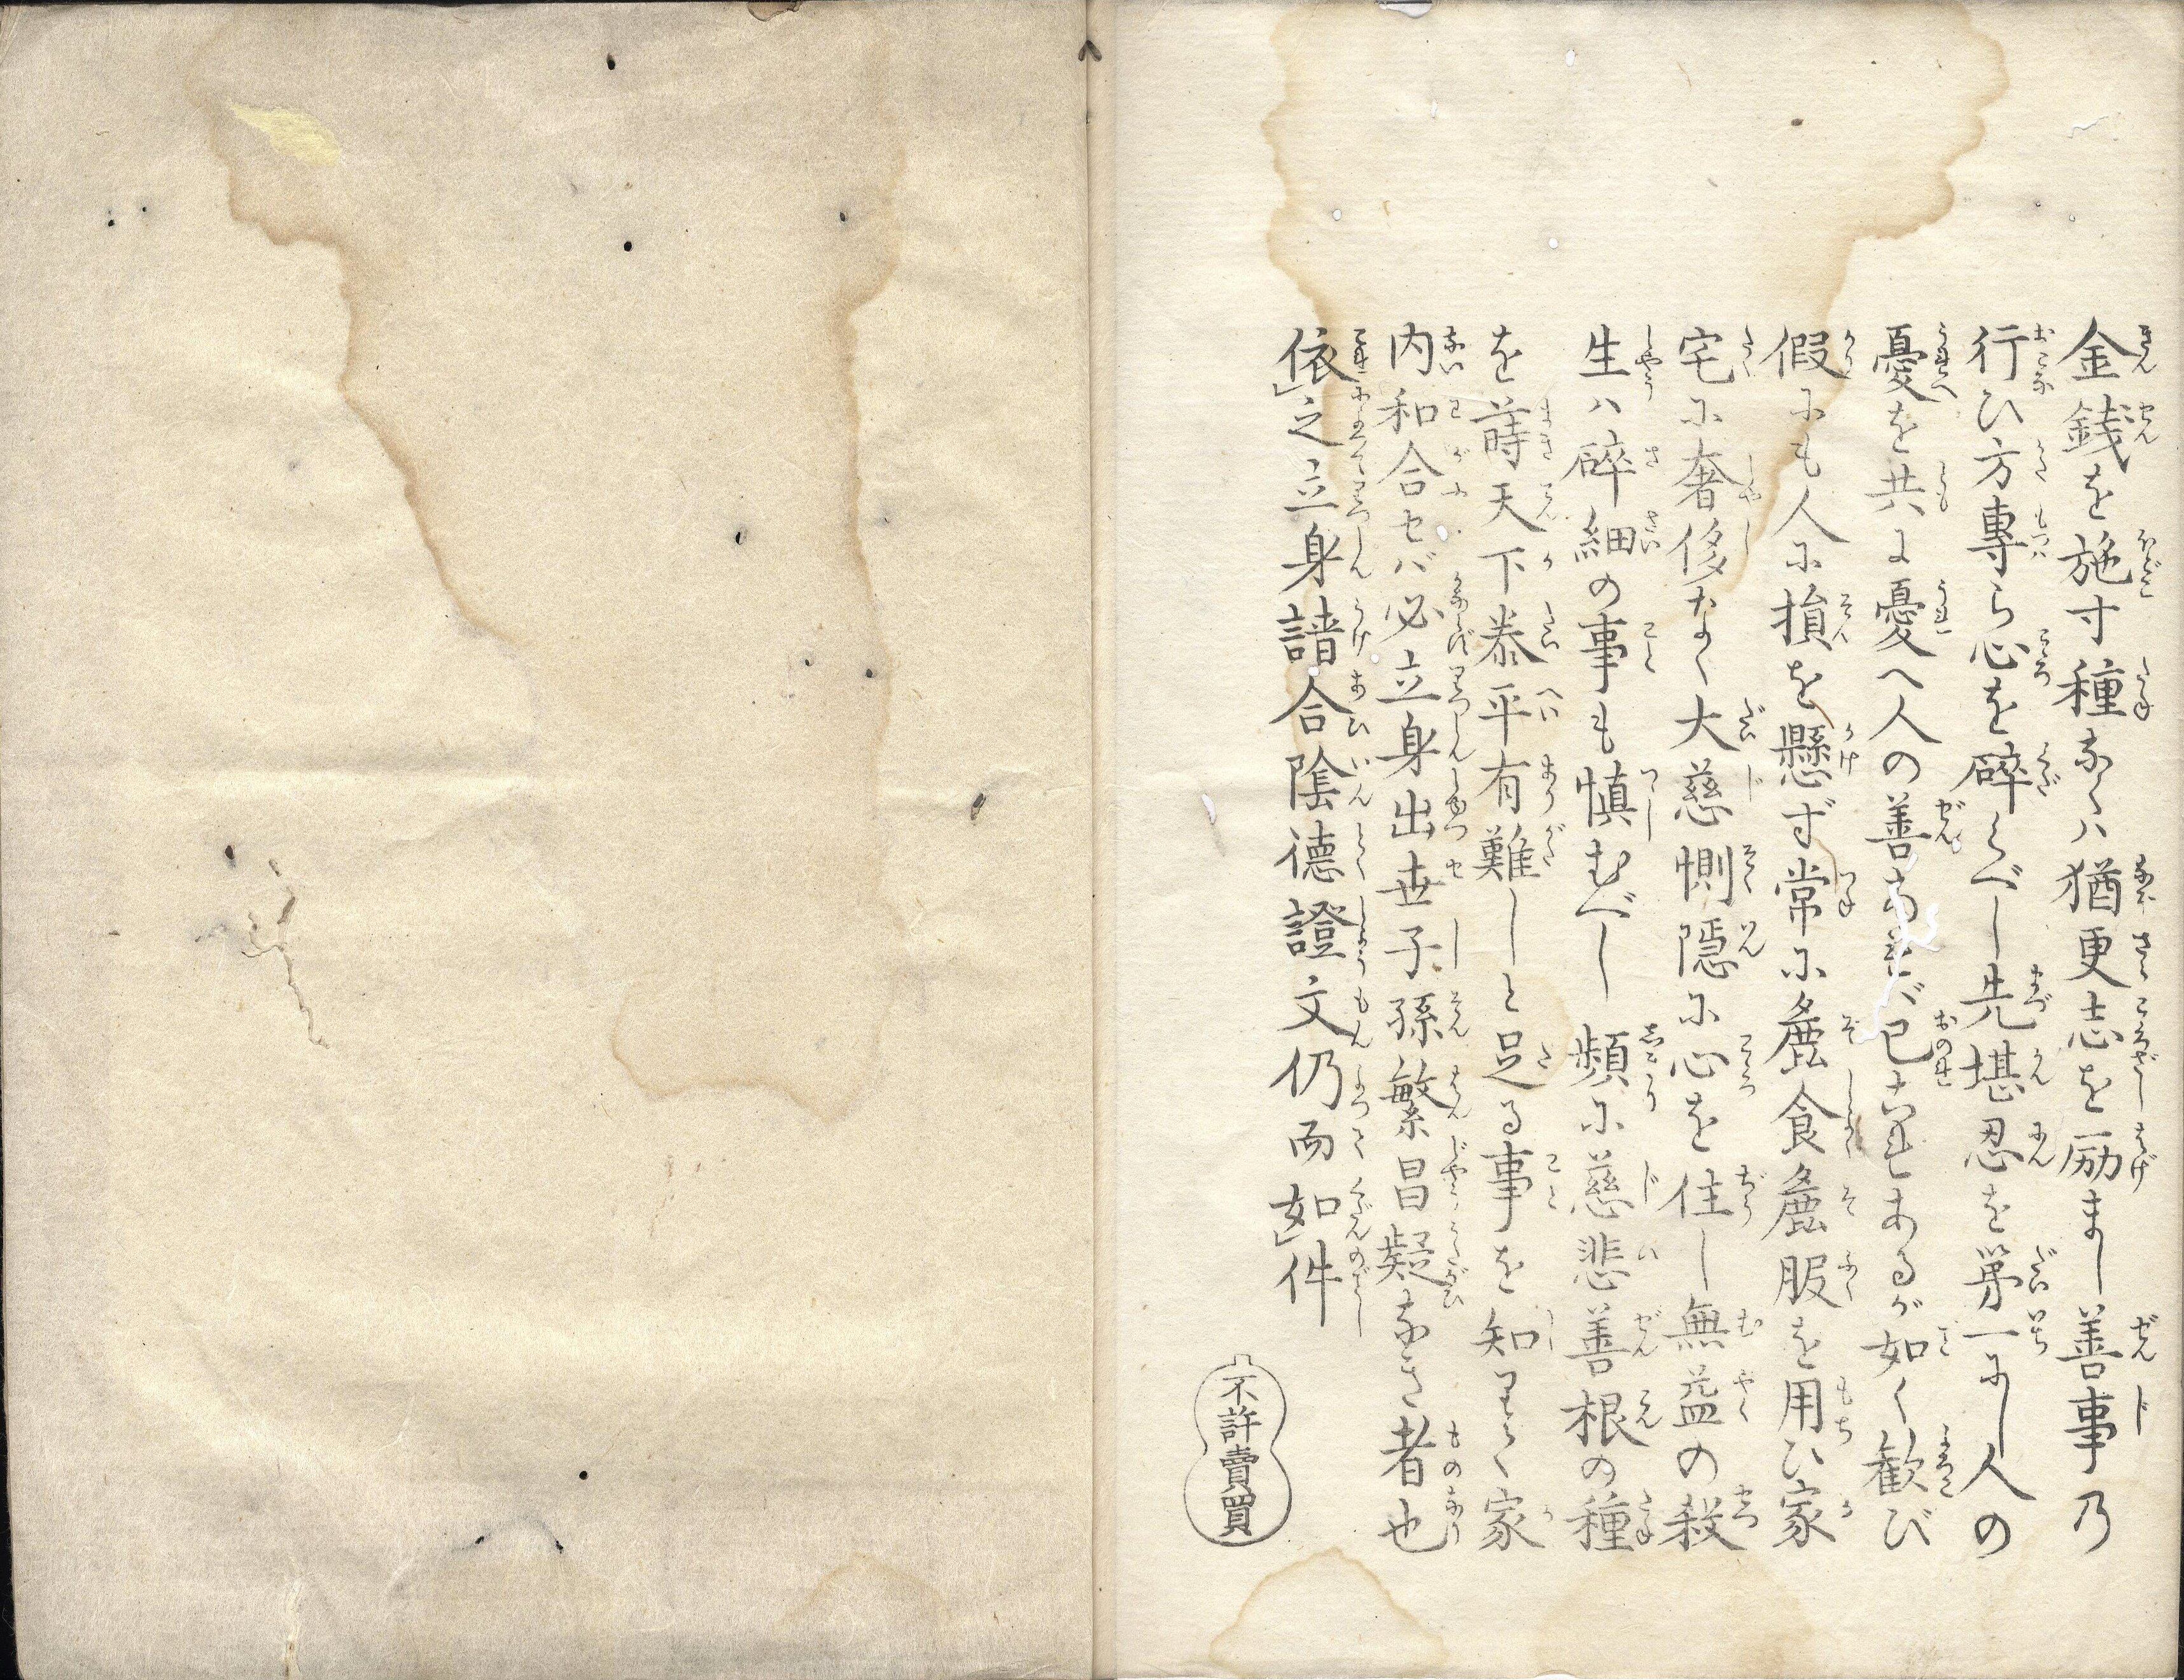 金銭を施す種なくハ猶更志を励まし善事乃
行ひ方専ら心を碎くべし先堪忍を第一にし人の
憂を共に憂へ人の善あれバ己これあるが如く歓び
假にも人に損を懸ず常に麁食麁服を用ひ家
宅に奢侈なく大慈惻隠に心を住し無益の殺
生ハ碎細の事も慎むべし頻に慈悲善根の種
を蒔天下泰平有難しと足る事を知りて家
内和合セバ必立身出世子孫繁昌疑なき者也
依之立身請合陰徳證文仍而如件
不許賣買